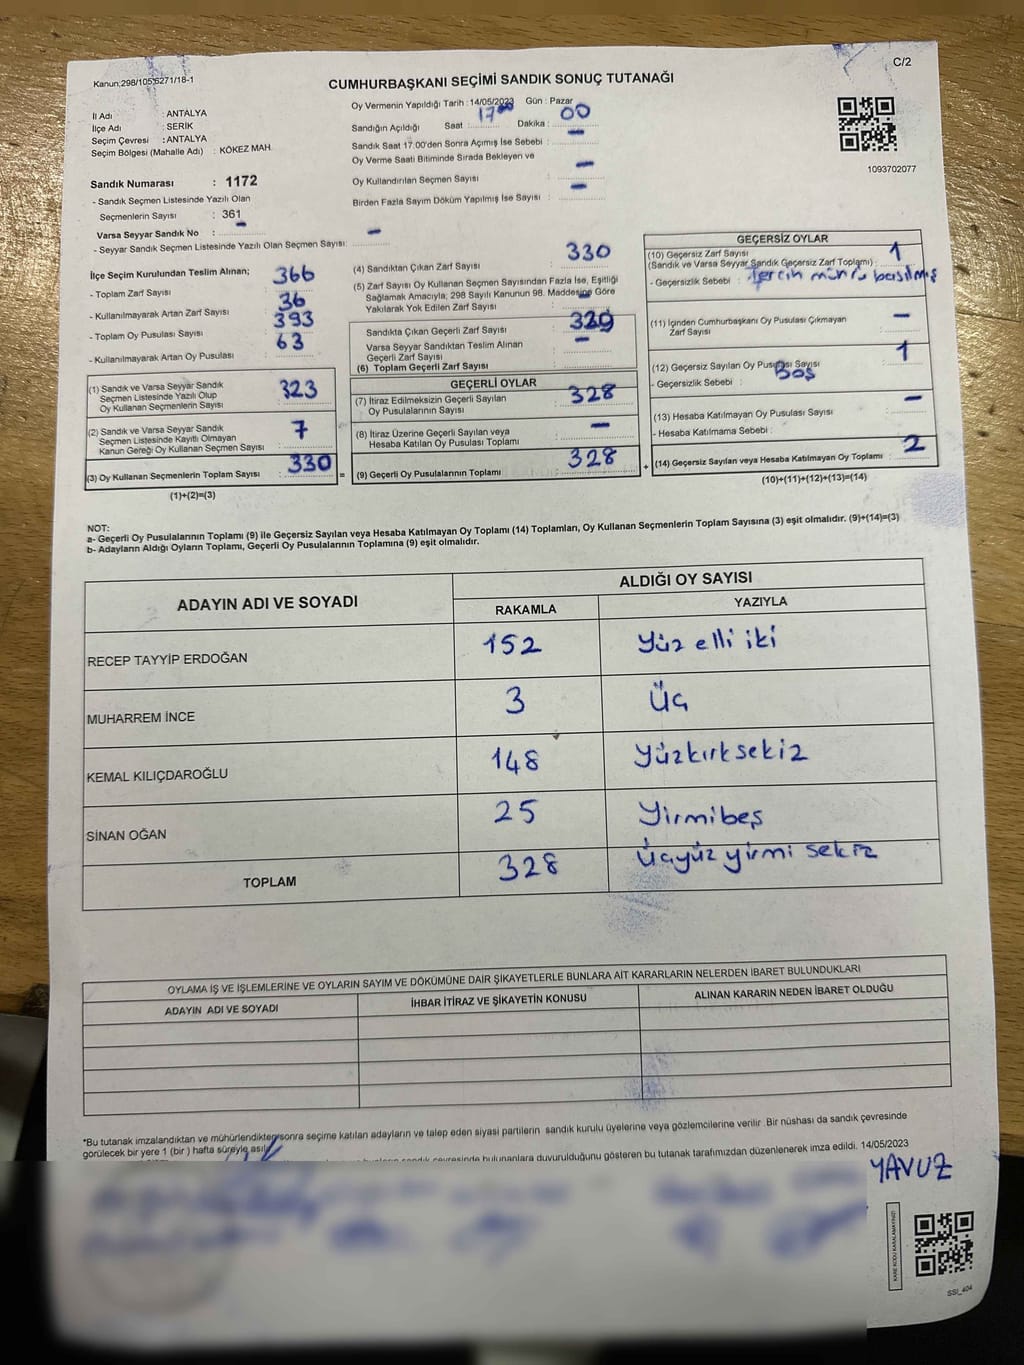 Kanun:298/105,6271/18-1
C/2
CUMHURBAŞKANI SEÇİMİ SANDIK SONUÇ TUTANAĞI
İl Adı : ANTALYA
İlçe Adı : SERİK
Seçim Çevresi : ANTALYA
Seçim Bölgesi (Mahalle Adı) : KÖKEZ MAH.
Sandık Numarası : 1172
- Sandık Seçmen Listesinde Yazılı Olan
Seçmenlerin Sayısı : 361
Varsa Seyyar Sandık No : -
- Seyyar Sandık Seçmen Listesinde Yazılı Olan Seçmen Sayısı: -
Oy Vermenin Yapıldığı Tarih : 14/05/2023 Gün : Pazar
Sandığın Açıldığı Saat : 17 00 Dakika : 00
Sandık Saat 17.00'den Sonra Açımış İse Sebebi : -
Oy Verme Saati Bitiminde Sırada Bekleyen ve
Oy Kullandırılan Seçmen Sayısı : -
Birden Fazla Sayım Döküm Yapılmış İse Sayısı : -
1093702077
İlçe Seçim Kurulundan Teslim Alınan;
- Toplam Zarf Sayısı : 366
- Kullanılmayarak Artan Zarf Sayısı : 36
- Toplam Oy Pusulası Sayısı : 393
- Kullanılmayarak Artan Oy Pusulası : 63
(1) Sandık ve Varsa Seyyar Sandık
Seçmen Listesinde Yazılı Olup
Oy Kullanan Seçmenlerin Sayısı : 323
(2) Sandık ve Varsa Seyyar Sandık
Seçmen Listesinde Kayıtlı Olmayan
Kanun Gereği Oy Kullanan Seçmen Sayısı : 7
(3) Oy Kullanan Seçmenlerin Toplam Sayısı : 330 =
(1)+(2)=(3)
(4) Sandıktan Çıkan Zarf Sayısı : 330
(5) Zarf Sayısı Oy Kullanan Seçmen Sayısından Fazla İse, Eşitliği
Sağlamak Amacıyla, 298 Sayılı Kanunun 98. Maddesine Göre
Yakılarak Yok Edilen Zarf Sayısı : -
Sandıkta Çıkan Geçerli Zarf Sayısı : 329
Varsa Seyyar Sandıktan Teslim Alınan
Geçerli Zarf Sayısı : -
(6) Toplam Geçerli Zarf Sayısı :
GEÇERLİ OYLAR
(7) İtiraz Edilmeksizin Geçerli Sayılan
Oy Pusulalarının Sayısı : 328
(8) İtiraz Üzerine Geçerli Sayılan veya
Hesaba Katılan Oy Pusulası Toplamı : -
(9) Geçerli Oy Pusulalarının Toplamı : 328 +
GEÇERSİZ OYLAR
(10) Geçersiz Zarf Sayısı
(Sandık ve Varsa Seyyar Sandık Geçersiz Zarf Toplamı) : 1
- Geçersizlik Sebebi : Tercih mührü basılmış
(11) İçinden Cumhurbaşkanı Oy Pusulası Çıkmayan
Zarf Sayısı : -
(12) Geçersiz Sayılan Oy Pusulası Sayısı : 1
- Geçersizlik Sebebi : Boş
(13) Hesaba Katılmayan Oy Pusulası Sayısı : -
- Hesaba Katılmama Sebebi :
(14) Geçersiz Sayılan veya Hesaba Katılmayan Oy Toplamı : 2
(10)+(11)+(12)+(13)=(14)
NOT:
a- Geçerli Oy Pusulalarının Toplamı (9) ile Geçersiz Sayılan veya Hesaba Katılmayan Oy Toplamı (14) Toplamları, Oy Kullanan Seçmenlerin Toplam Sayısına (3) eşit olmalıdır. (9)+(14)=(3)
b- Adayların Aldığı Oyların Toplamı, Geçerli Oy Pusulalarının Toplamına (9) eşit olmalıdır.
ADAYIN ADI VE SOYADI ALDIĞI OY SAYISI
RAKAMLA YAZIYLA
RECEP TAYYİP ERDOĞAN 152 Yüz elli iki
MUHARREM İNCE 3 Üç
KEMAL KILIÇDAROĞLU 148 Yüzkırksekiz
SİNAN OĞAN 25 Yirmibeş
TOPLAM 328 Üçyüz yirmi sekiz
OYLAMA İŞ VE İŞLEMLERİNE VE OYLARIN SAYIM VE DÖKÜMÜNE DAİR ŞİKAYETLERLE BUNLARA AİT KARARLARIN NELERDEN İBARET BULUNDUKLARI
ADAYIN ADI VE SOYADI İHBAR İTİRAZ VE ŞİKAYETİN KONUSU ALINAN KARARIN NEDEN İBARET OLDUĞU
*Bu tutanak imzalandıktan ve mühürlendikten sonra seçime katılan adayların ve talep eden siyasi partilerin sandık kurulu üyelerine veya gözlemcilerine verilir. Bir nüshası da sandık çevresinde
görülecek bir yere 1 (bir) hafta süreyle asılır
sandık çevresinde bulunanlara duyurulduğunu gösteren bu tutanak tarafımızdan düzenlenerek imza edildi. 14/05/2023
YAVUZ
KARE KODU KARALAMAYINIZ!
SSI_404